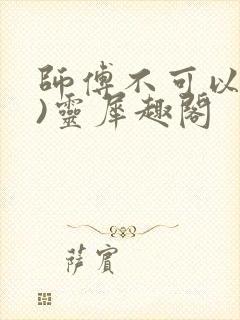 師傅不可以
)靈犀趣閣
薩賓